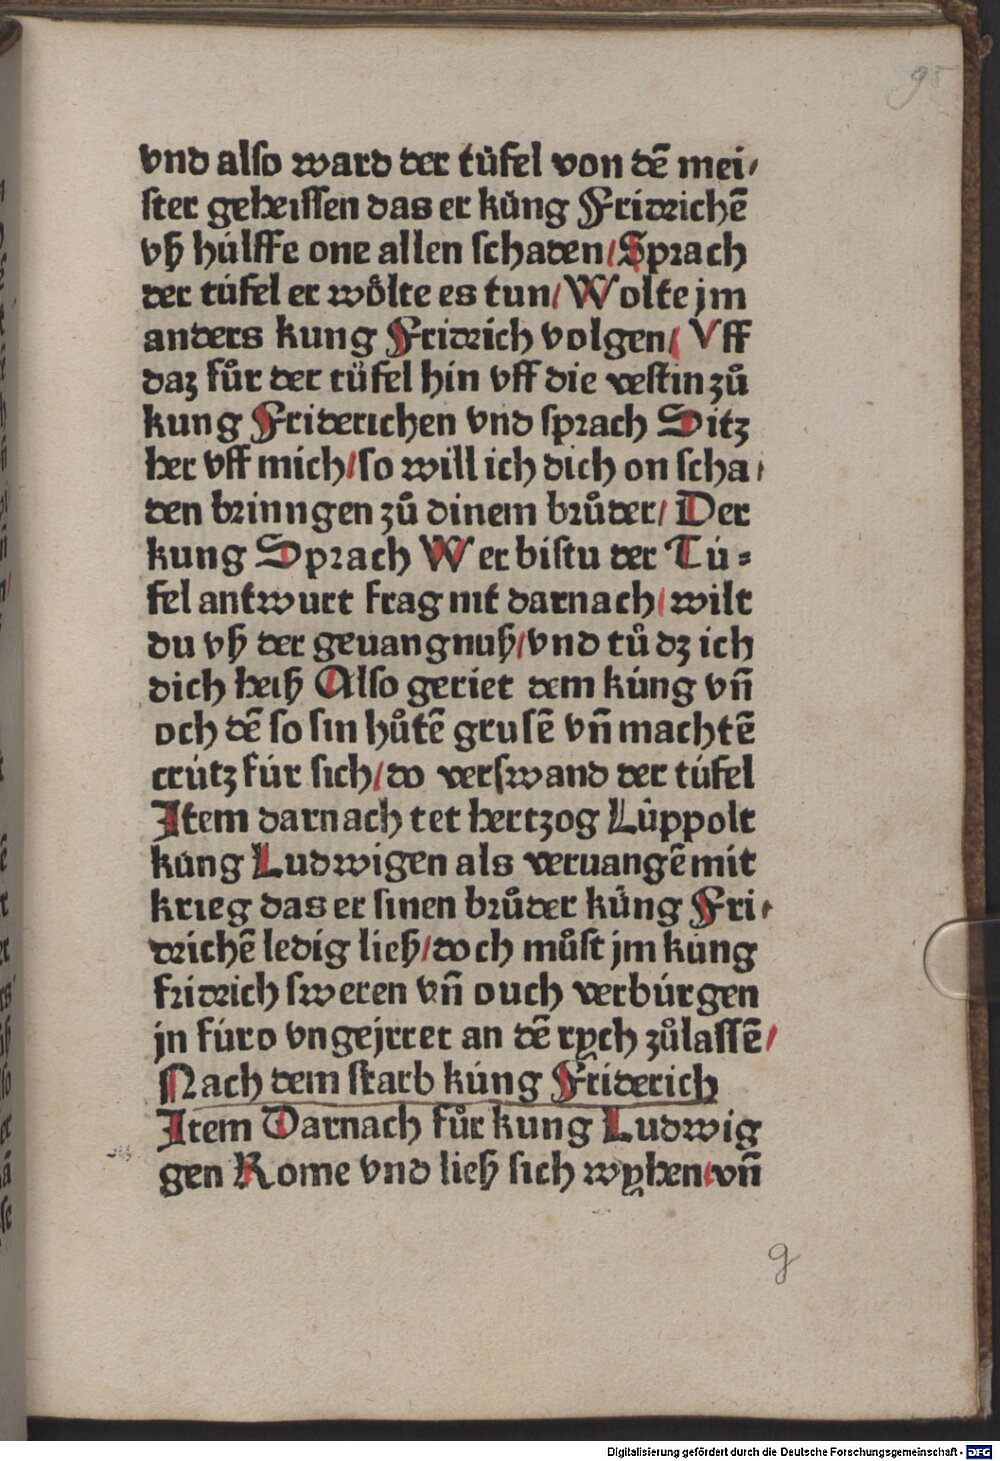 95
vnd also ward der tüfel von dē mei⸗
ster geheissen das er küng Fridrichē
vß hülffe one allen schaden/ Sprach
der tüfel er wölte es tun/ Wolte jm
anders kung Fridrich volgen/ Vff
daz fůr der tüfel hin vff die vestin zů
kung Friderichen vnd sprach Sitz
her vff mich/ so will ich dich on scha⸗
den brinngen zů dinem brůder/ Der
kung Sprach Wer bistu der Tü⸗
fel antwurt frag nit darnach/ wilt
du vß der geuangnuß/ vnd tů dz ich
dich heiß Also geriet dem küng vn̄
och dē so sin hůtē grusē vn̄ machtē
crütz für sich/ do verswand der tüfel
Item darnach tet hertzog Lüppolt
küng Ludwigen als veruangē mit
krieg das er sinen brůder küng Fri⸗
drichē ledig ließ/ doch můst jm küng
fridrich sweren vn̄ ouch verbürgen
jn füro vngejrret an dē rych zůlassē/
Nach dem starb küng Friderich
Item Darnach fůr kung Ludwig
gen Rome vnd ließ sich wyhen/ vn̄
g
Digitalisierung gefördert durch die Deutsche Forschungsgemeinschaft - DFG